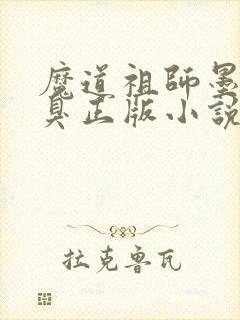 魔道祖師墨
臭正版小說
拉克魯瓦